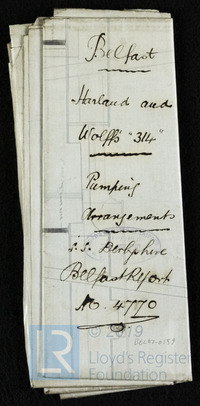 Belfast
Harland and
Wolff's "314"
Pumping
Arrangements
S.S. Derbyshire
Belfast Report
No. 4770
© 2019
Lloyd's Register
Foundation
LR